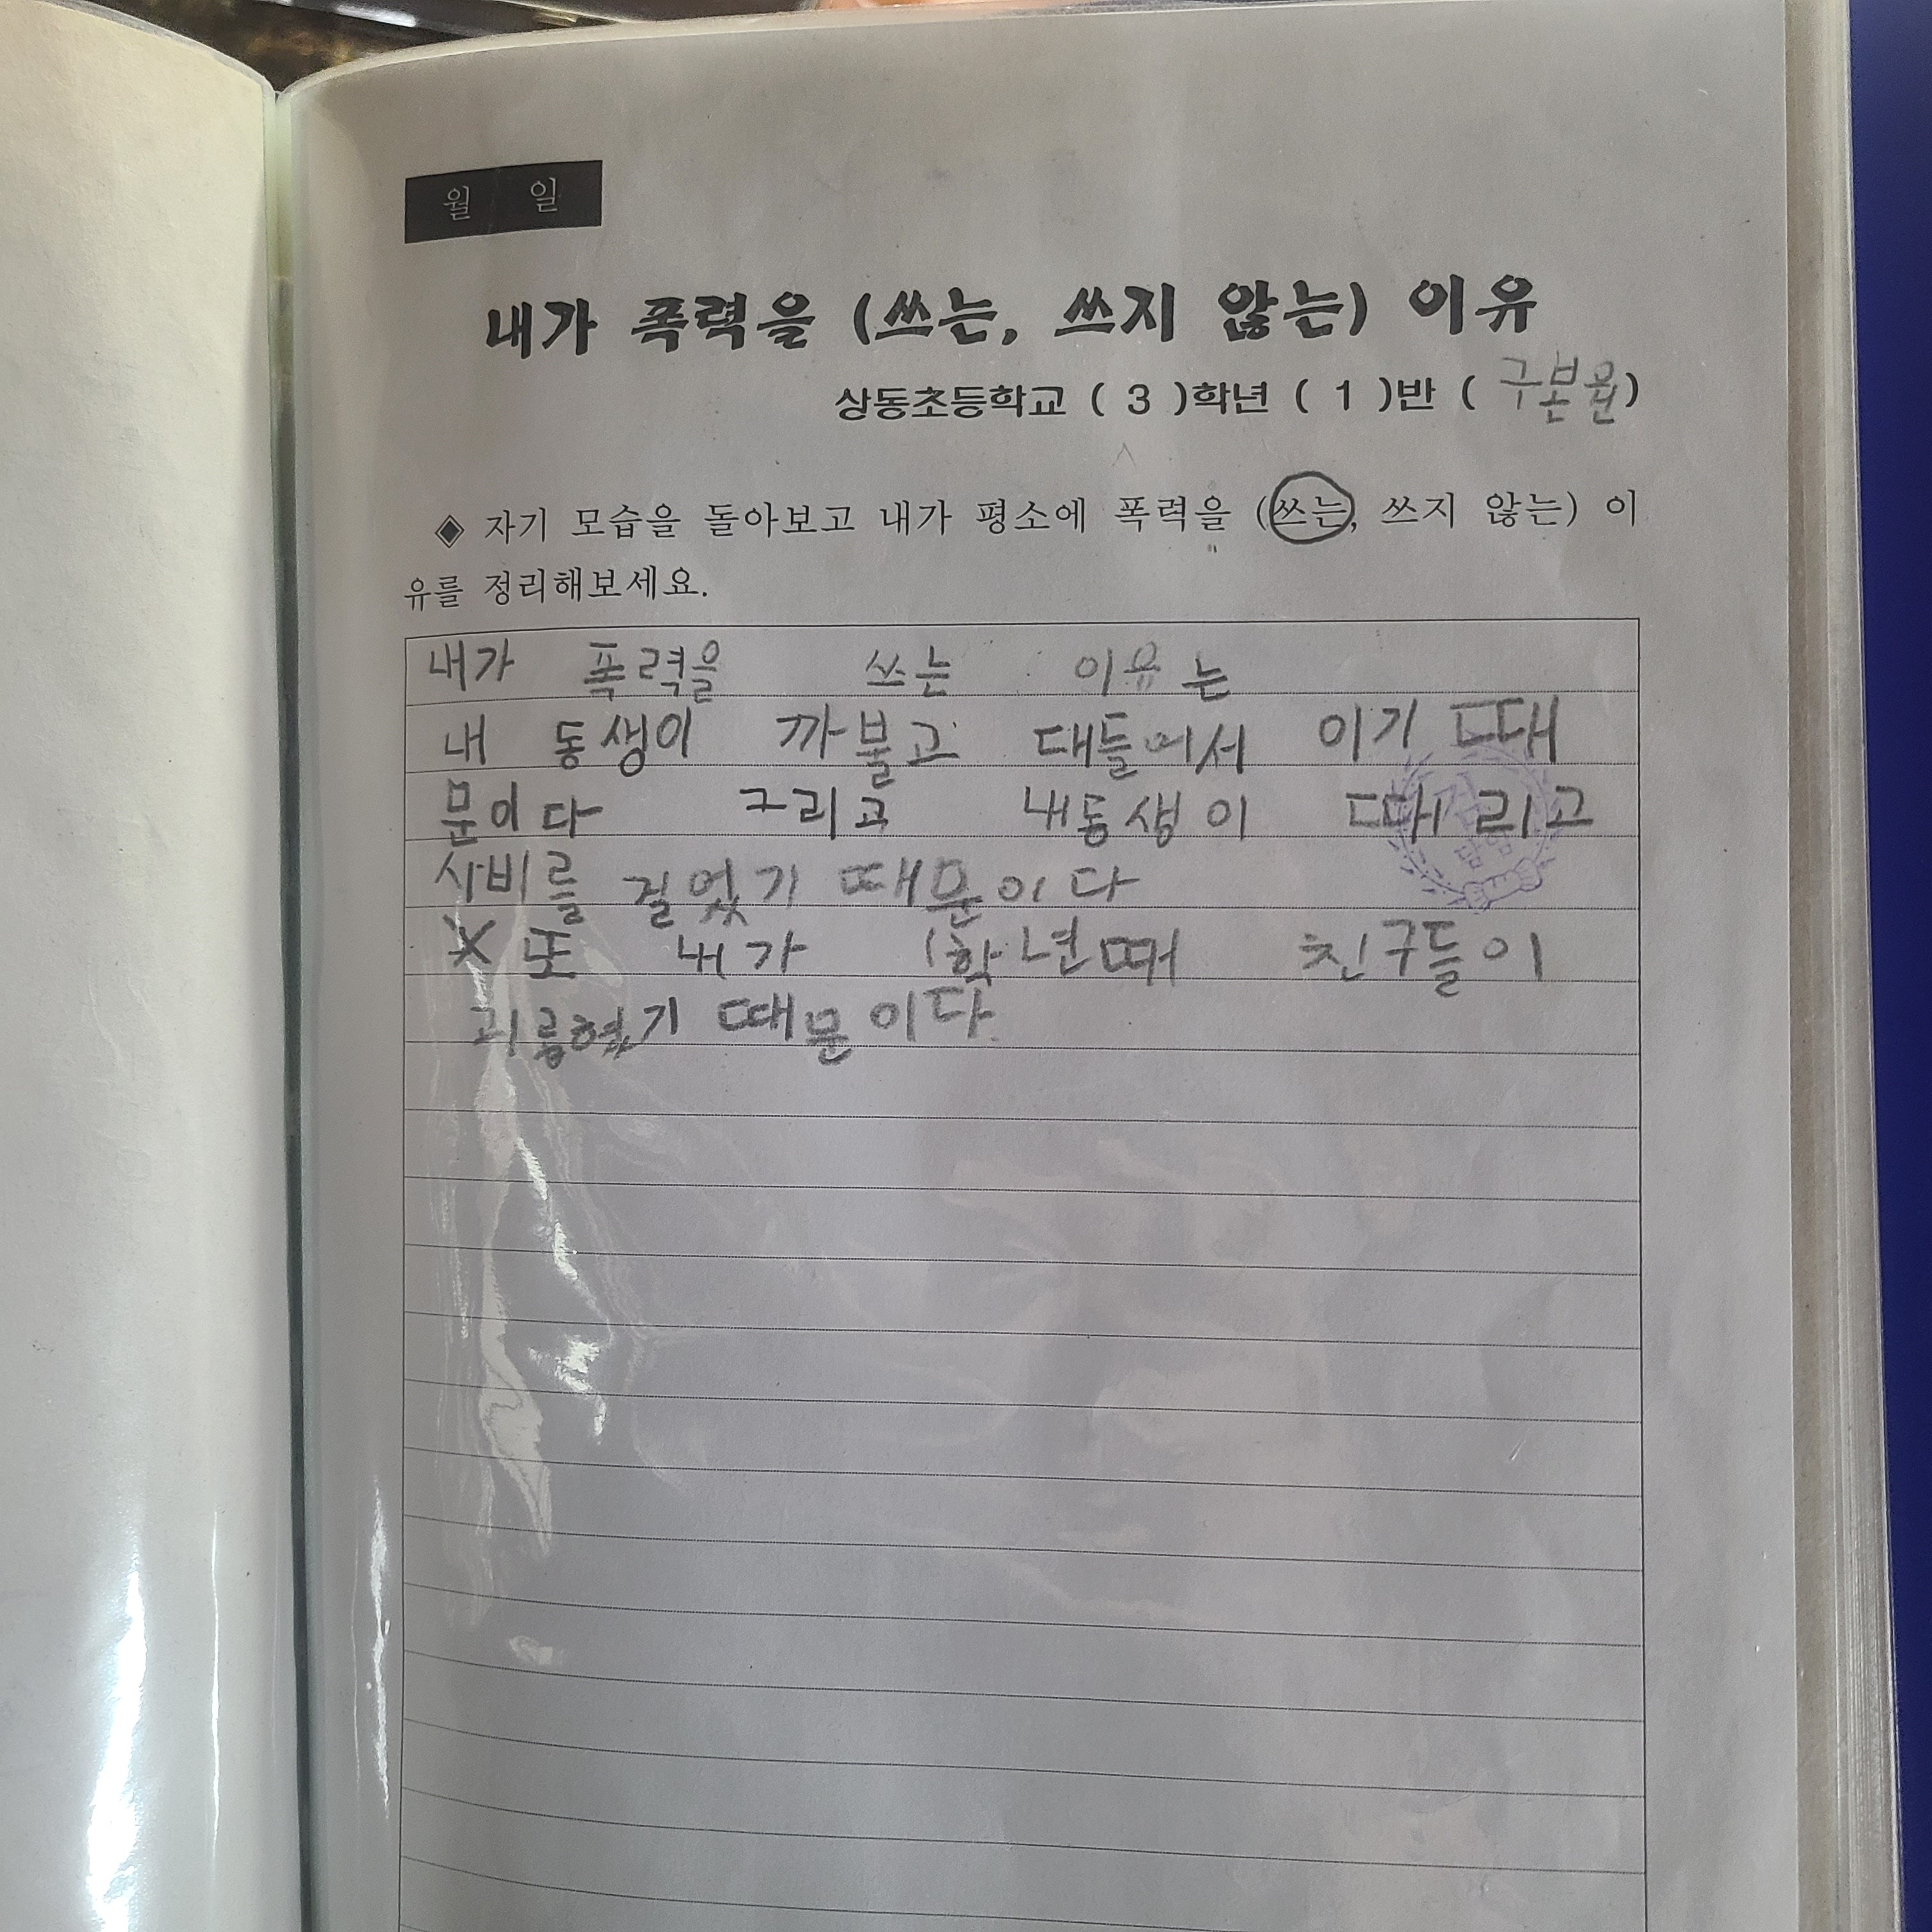 월 일
내가 폭력을 (쓰는, 쓰지 않는) 이유
상동초등학교 ( 3 )학년 ( 1 )반 ( 구본율)
◈ 자기 모습을 돌아보고 내가 평소에 폭력을 (쓰는, 쓰지 않는) 이
유를 정리해보세요.
내가 폭력을 쓰는 이유는
내 동생이 까불고 대들어서 이기 때
문이다 그리고 내동생이 때리고
시비를 걸었기 때문이다
X 또 내가 1학년때 친구들이
괴롭혔기 때문이다.